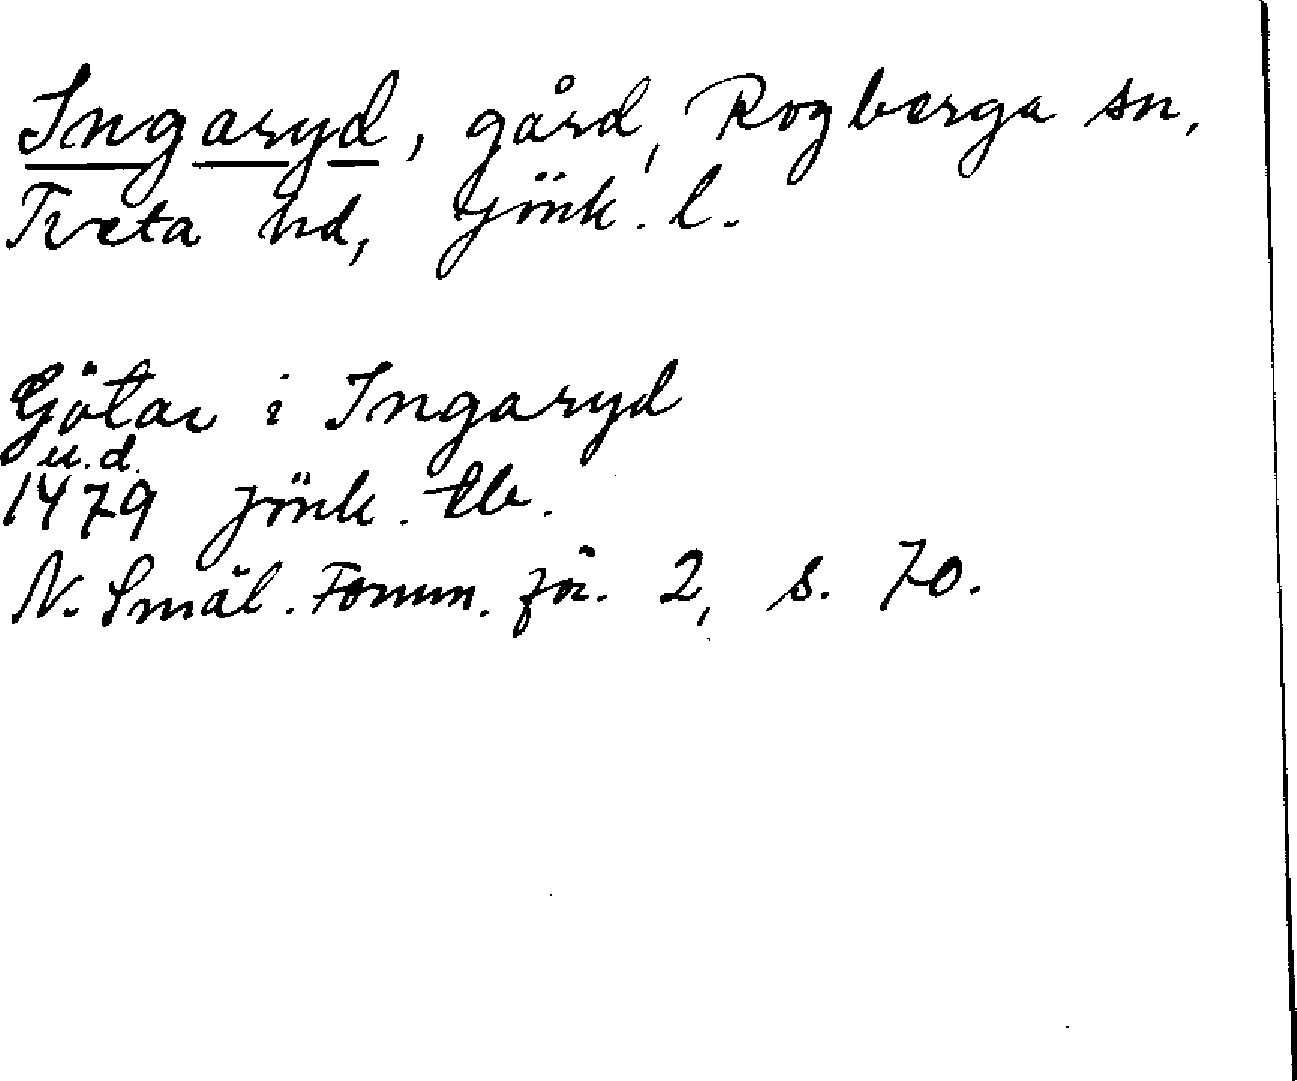 Ingaryd, gård, Rogberga sn,
Tveta hd, Jönk. l.
Götar i Ingaryd
u.d.
1479 Jönk. tb.
N. Smål. Fornm. för. 2, s. 70.